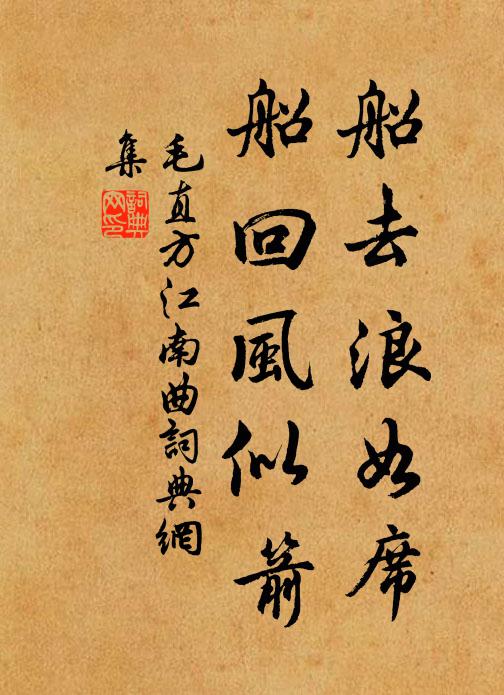 船去浪如席
船回風似箭
毛直方江南曲詞典網
集
詞典網印